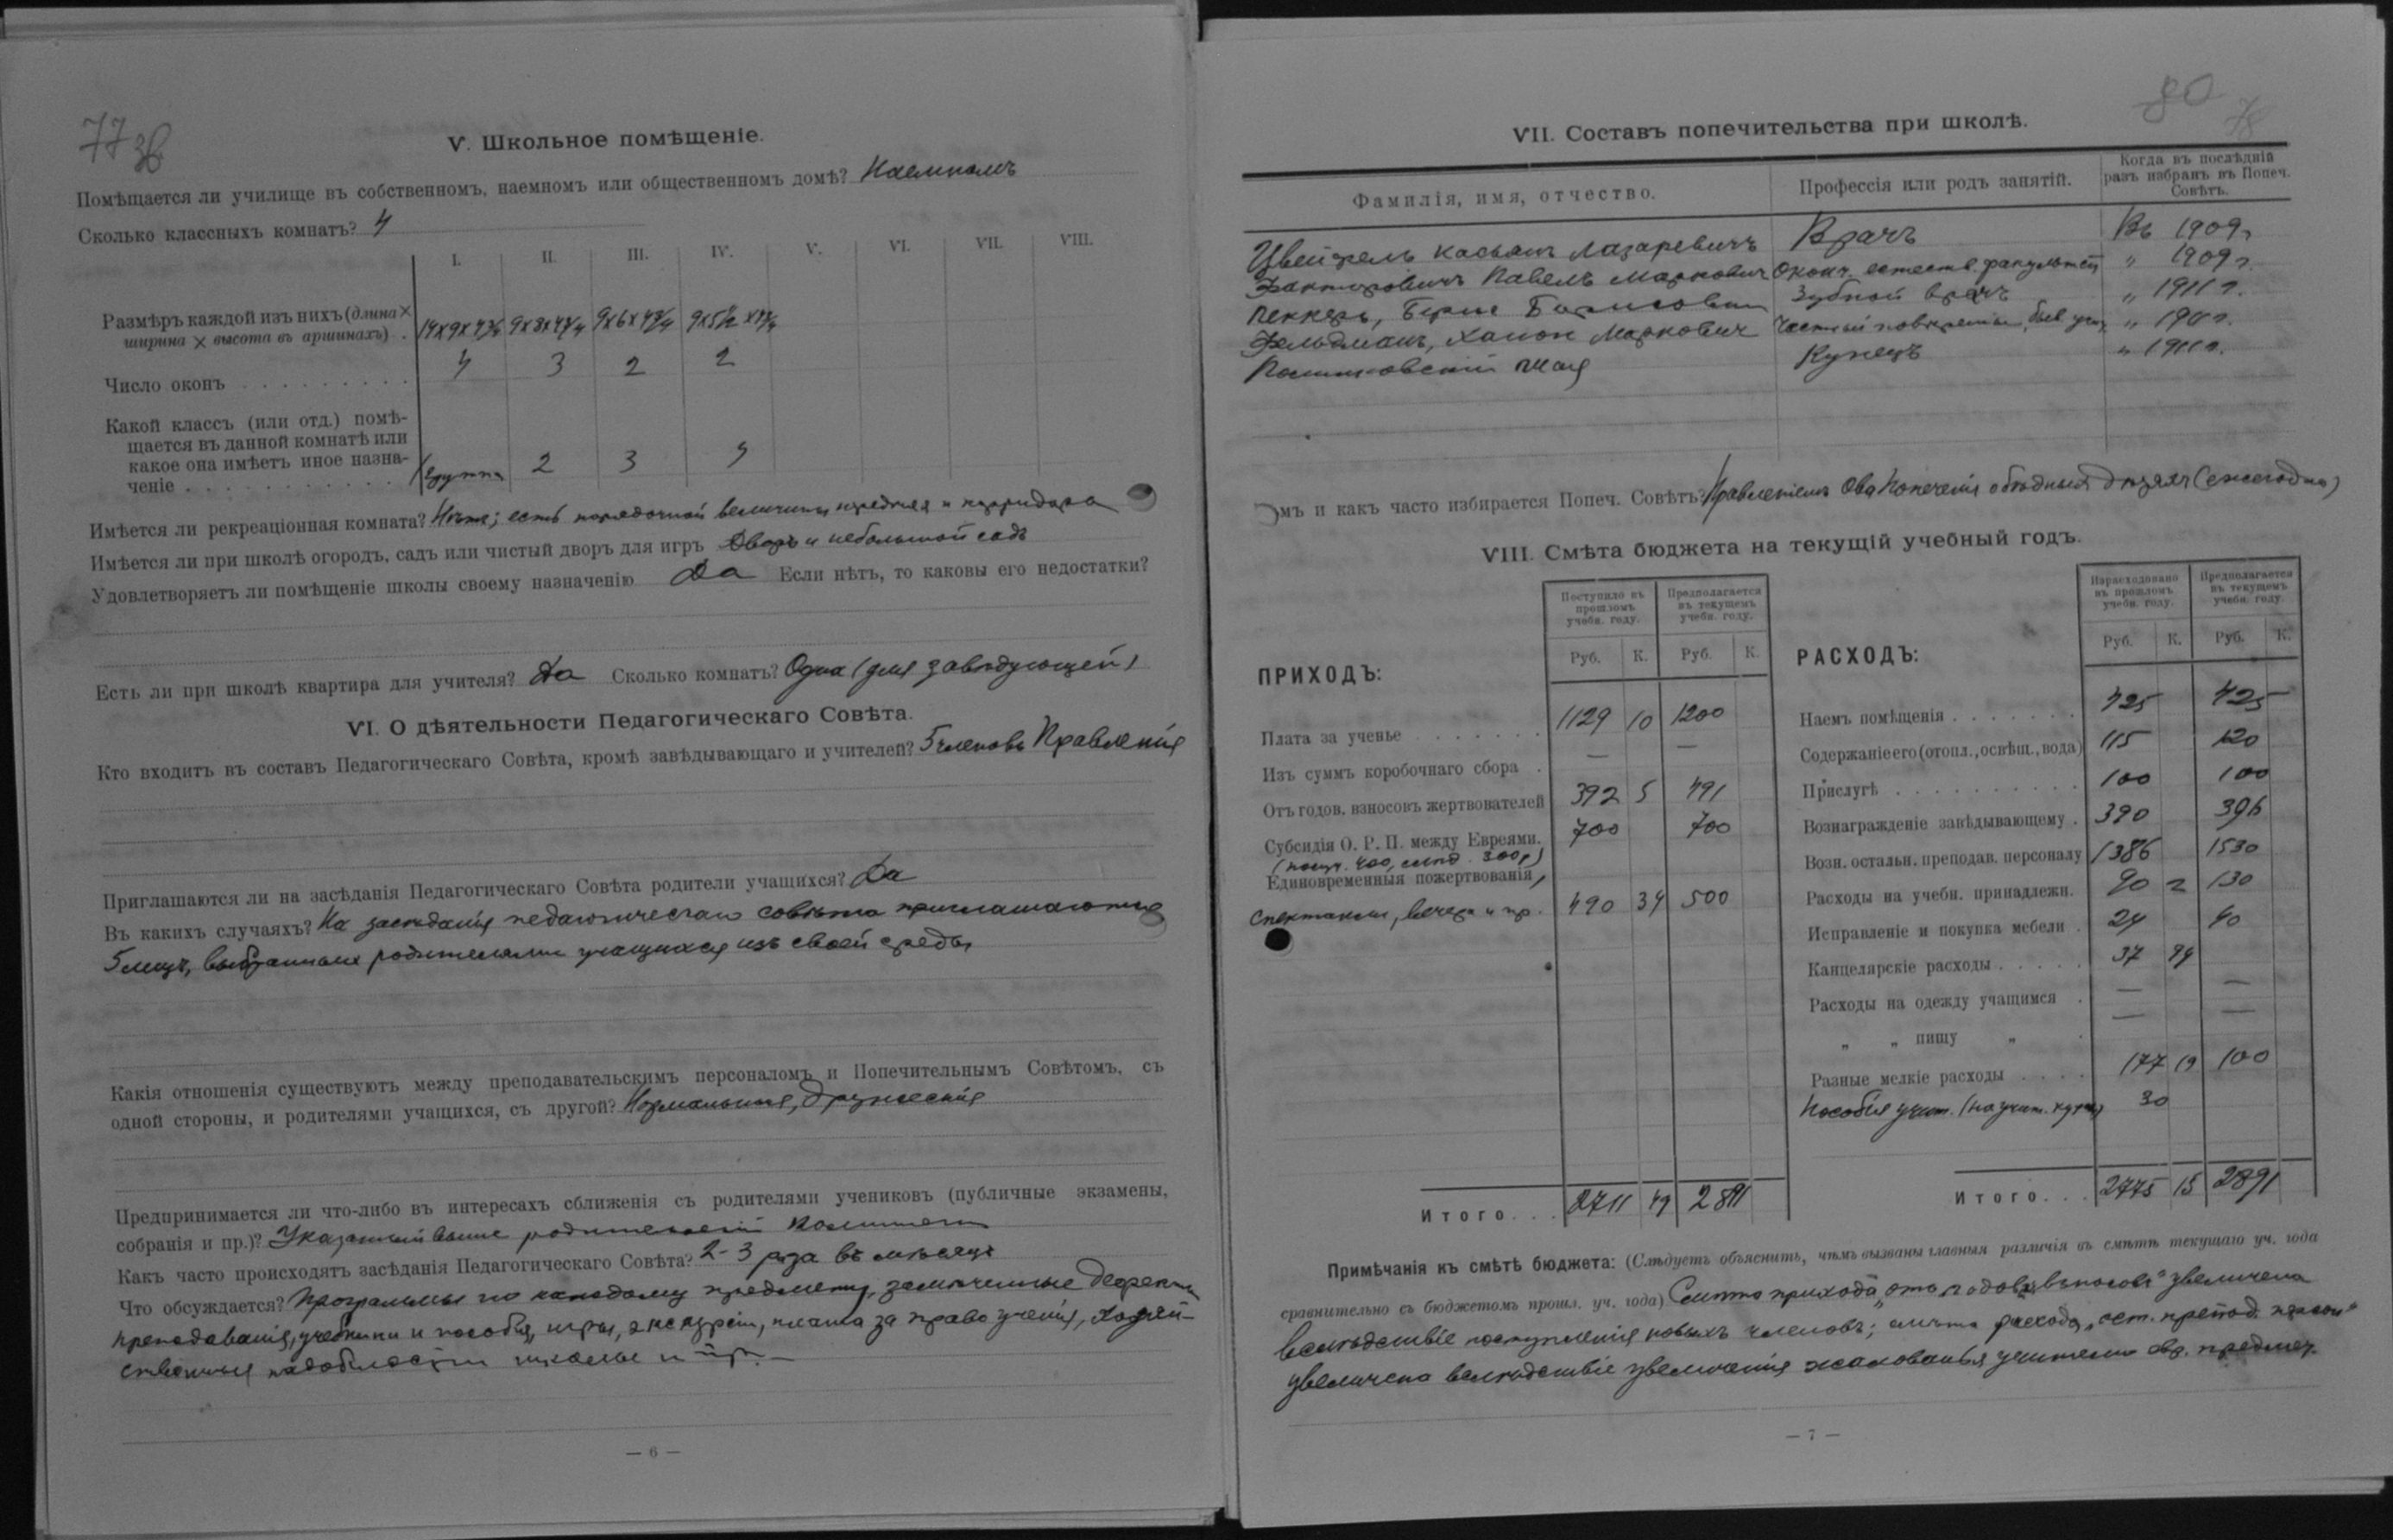 77 об
V. Школьное помѣщеніе.
Помѣщается ли училище въ собственномъ, наемномъ или общественномъ домѣ? Наемномъ
Сколько классныхъ комнатъ? 4
I. II. III. IV. V. VI. VII. VIII.
Размѣръ каждой изъ нихъ (длина ×
ширина × высота въ аршинахъ) . 14×9×4¾ 9×8×4¾ 9×6×4¾ 9×5½×4¾
Число оконъ . . . . . . . . . 4 3 2 2
Какой классъ (или отд.) помѣ-
щается въ данной комнатѣ или
какое она имѣетъ иное назна-
ченіе . . . . . . . . . . . 1 группа 2 3 4
Имѣется ли рекреаціонная комната? Нѣтъ; есть порядочной величины передняя и корридора
Имѣется ли при школѣ огородъ, садъ или чистый дворъ для игръ Дворъ и небольшой садъ
Удовлетворяетъ ли помѣщеніе школы своему назначенію Да Если нѣтъ, то каковы его недостатки?
Есть ли при школѣ квартира для учителя? Да Сколько комнатъ? Одна (для завѣдующей)
VI. О дѣятельности Педагогическаго Совѣта.
Кто входитъ въ составъ Педагогическаго Совѣта, кромѣ завѣдывающаго и учителей? 5 членовъ Правленія
Приглашаются ли на засѣданія Педагогическаго Совѣта родители учащихся? Да
Въ какихъ случаяхъ? На засѣданія педагогическаго совѣта приглашаются
5 лицъ, выбранныхъ родителями учащихся изъ своей среды
Какія отношенія существуютъ между преподавательскимъ персоналомъ и Попечительнымъ Совѣтомъ, съ
одной стороны, и родителями учащихся, съ другой? Нормальныя, дружескія
Предпринимается ли что-либо въ интересахъ сближенія съ родителями учениковъ (публичные экзамены,
собранія и пр.)? Указанный выше родительскій комитетъ
Какъ часто происходятъ засѣданія Педагогическаго Совѣта? 2-3 раза въ мѣсяцъ
Что обсуждается? Программы по каждому предмету, замѣченные дефекты
преподаванія, учебники и пособія, игры, экскурсіи, плата за право ученія, хозяй-
ственныя надобности школы и пр.
— 6 —
80
78
VII. Составъ попечительства при школѣ.
Фамилія, имя, отчество. Профессія или родъ занятій. Когда въ послѣдній
разъ избранъ въ Попеч.
Совѣтъ.
Цвейфель Касьянъ Лазаревичъ Врачъ Въ 1909 г.
Факторовичъ Павелъ Марковичъ Оконч. естеств. факультетъ " 1909 г.
Пеккеръ, Борисовичъ Зубной врачъ " 1911 г.
Фельдманъ, Ханон Марковичъ Частный повѣренный, быв. уч. " 190 г.
Шая Купецъ " 1911 г.
мъ и какъ часто избирается Попеч. Совѣтъ? Правленіемъ О-ва попеченія о бѣдныхъ дѣтяхъ (ежегодно)
VIII. Смѣта бюджета на текущій учебный годъ.
ПРИХОДЪ: Поступило въ прошломъ учебн. году. Предполагается въ текущемъ учебн. году.
Руб. К. Руб. К.
Плата за ученье . . . . . . . 1129 10 1200
Изъ суммъ коробочнаго сбора . — —
Отъ годов. взносовъ жертвователей 392 5 491
Субсидія О. Р. П. между Евреями. 700 700
(поступ. 400, слѣд. 300 р.)
Единовременныя пожертвованія,
спектакли, вечера и пр. 490 34 500
Итого. . . 2711 49 2891
РАСХОДЪ: Израсходовано въ прошломъ учебн. году. Предполагается въ текущемъ учебн. году.
Руб. К. Руб. К.
Наемъ помѣщенія . . . . . . . 425 425
Содержаніе его (отопл., освѣщ., вода) 115 120
Прислугѣ . . . . . . . . . . 100 100
Вознагражденіе завѣдывающему . 390 396
Возн. остальн. преподав. персоналу 1386 1530
Расходы на учебн. принадлежн. 90 2 130
Исправленіе и покупка мебели . 24 40
Канцелярскіе расходы . . . . . 37 94
Расходы на одежду учащимся . — —
" " пищу " . — —
Разные мелкіе расходы . . . . 177 19 100
Пособія учит. (на учит. курсы) 30
Итого. . . 2775 15 2891
Примѣчанія къ смѣтѣ бюджета: (Слѣдуетъ объяснить, чѣмъ вызваны главныя различія въ смѣтѣ текущаго уч. года
сравнительно съ бюджетомъ прошл. уч. года) Смѣта прихода „отъ годовыхъ взносовъ" увеличена
вслѣдствіе поступленія новыхъ членовъ; смѣта расхода „ост. препод. персон."
увеличена вслѣдствіе увеличенія жалованья учителю евр. предмет.
— 7 —